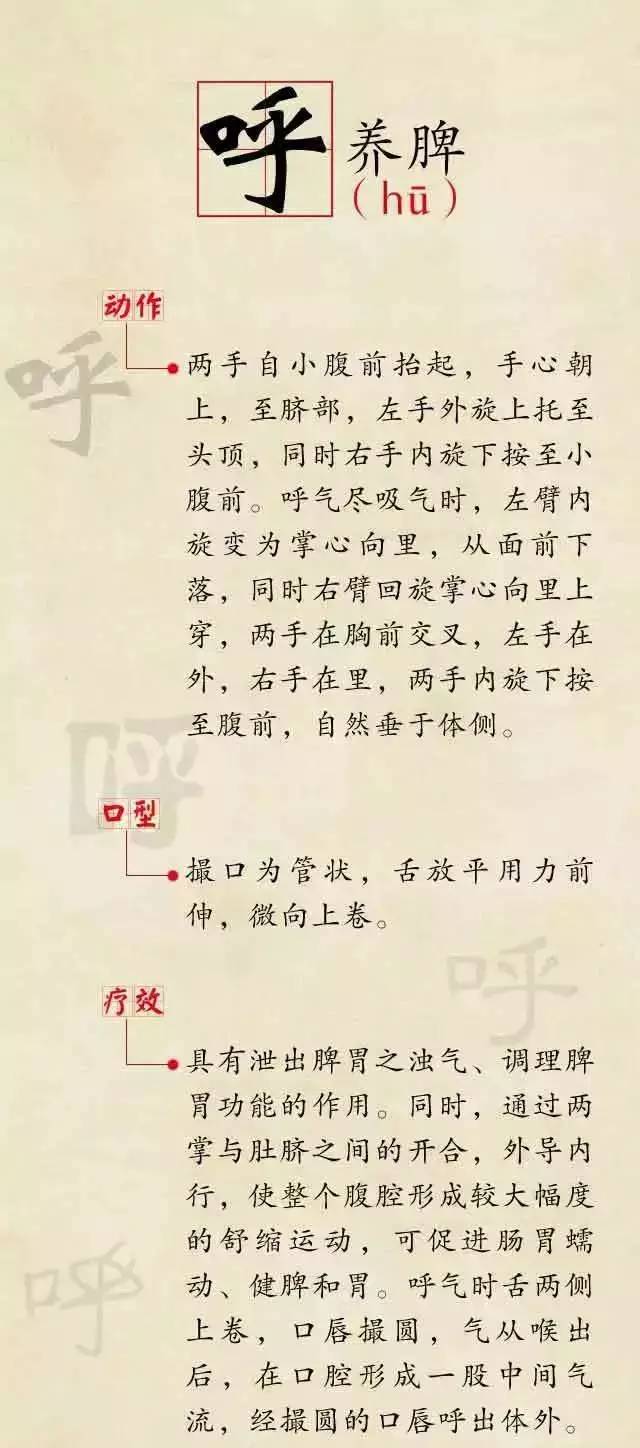 呼 养脾
（hū）
动作
两手自小腹前抬起，手心朝
上，至脐部，左手外旋上托至
头顶，同时右手内旋下按至小
腹前。呼气尽吸气时，左臂内
旋变为掌心向里，从面前下
落，同时右臂回旋掌心向里上
穿，两手在胸前交叉，左手在
外，右手在里，两手内旋下按
至腹前，自然垂于体侧。
呼
呼
口型
撮口为管状，舌放平用力前
伸，微向上卷。
呼
疗效
具有泄出脾胃之浊气、调理脾
胃功能的作用。同时，通过两
掌与肚脐之间的开合，外导内
行，使整个腹腔形成较大幅度
的舒缩运动，可促进肠胃蠕
动、健脾和胃。呼气时舌两侧
上卷，口唇撮圆，气从喉出
后，在口腔形成一股中间气
流，经撮圆的口唇呼出体外。
呼